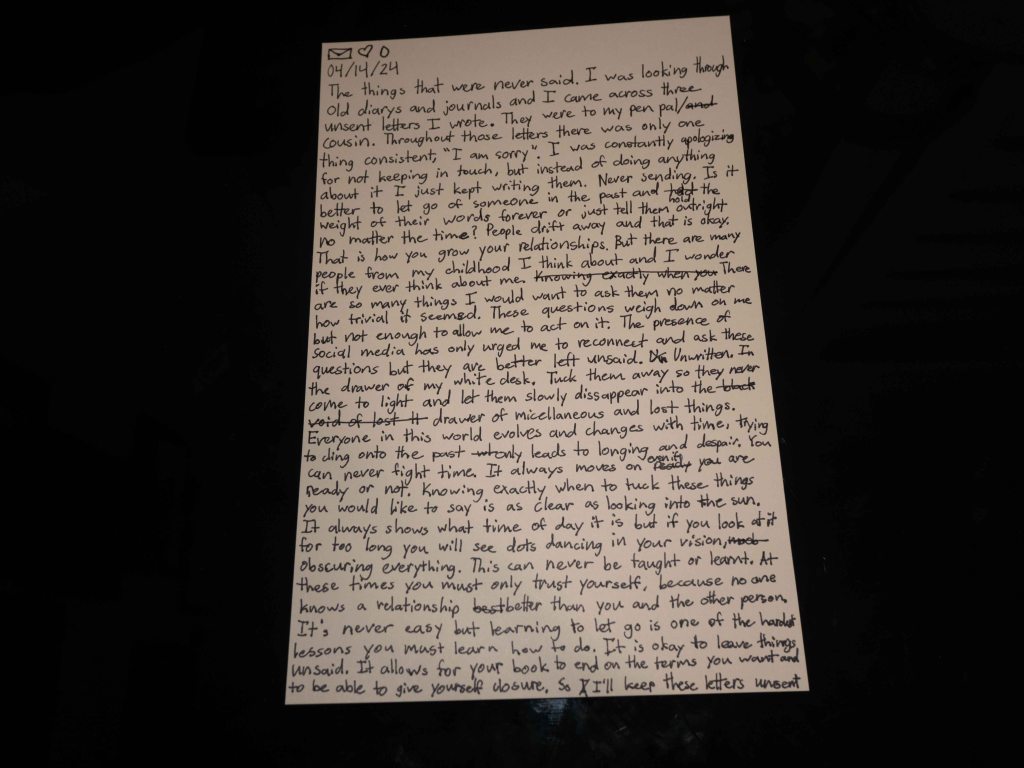 04/14/24
The things that were never said. I was looking through
old diarys and journals and I came across three
unsent letters I wrote. They were to my pen pal/and
cousin. Throughout those letters there was only one
thing consistent, "I am sorry". I was constantly apologizing
for not keeping in touch, but instead of doing anything
about it I just kept writing them. Never sending. Is it
better to let go of someone in the past and hold the
weight of their words forever or just tell them outright
no matter the time? People drift away and that is okay.
That is how you grow your relationships. But there are many
people from my childhood I think about and I wonder
if they ever think about me. Knowing exactly when you There
are so many things I would want to ask them no matter
how trivial it seemed. These questions weigh down on me
but not enough to allow me to act on it. The presence of
social media has only urged me to reconnect and ask these
questions but they are better left unsaid. Unwritten. In
the drawer of my white desk. Tuck them away so they never
come to light and let them slowly dissappear into the black
void of lost drawer of micellaneous and lost things.
Everyone in this world evolves and changes with time, trying
to cling onto the past only leads to longing and despair. You
can never fight time. It always moves on even if you are
ready or not. Knowing exactly when to tuck these things
you would like to say is as clear as looking into the sun.
It always shows what time of day it is but if you look at it
for too long you will see dots dancing in your vision,
obscuring everything. This can never be taught or learnt. At
these times you must only trust yourself, because no one
knows a relationship best better than you and the other person.
It's never easy but learning to let go is one of the hardest
lessons you must learn how to do. It is okay to leave things
unsaid. It allows for your book to end on the terms you want and
to be able to give yourself closure. So I'll keep these letters unsent